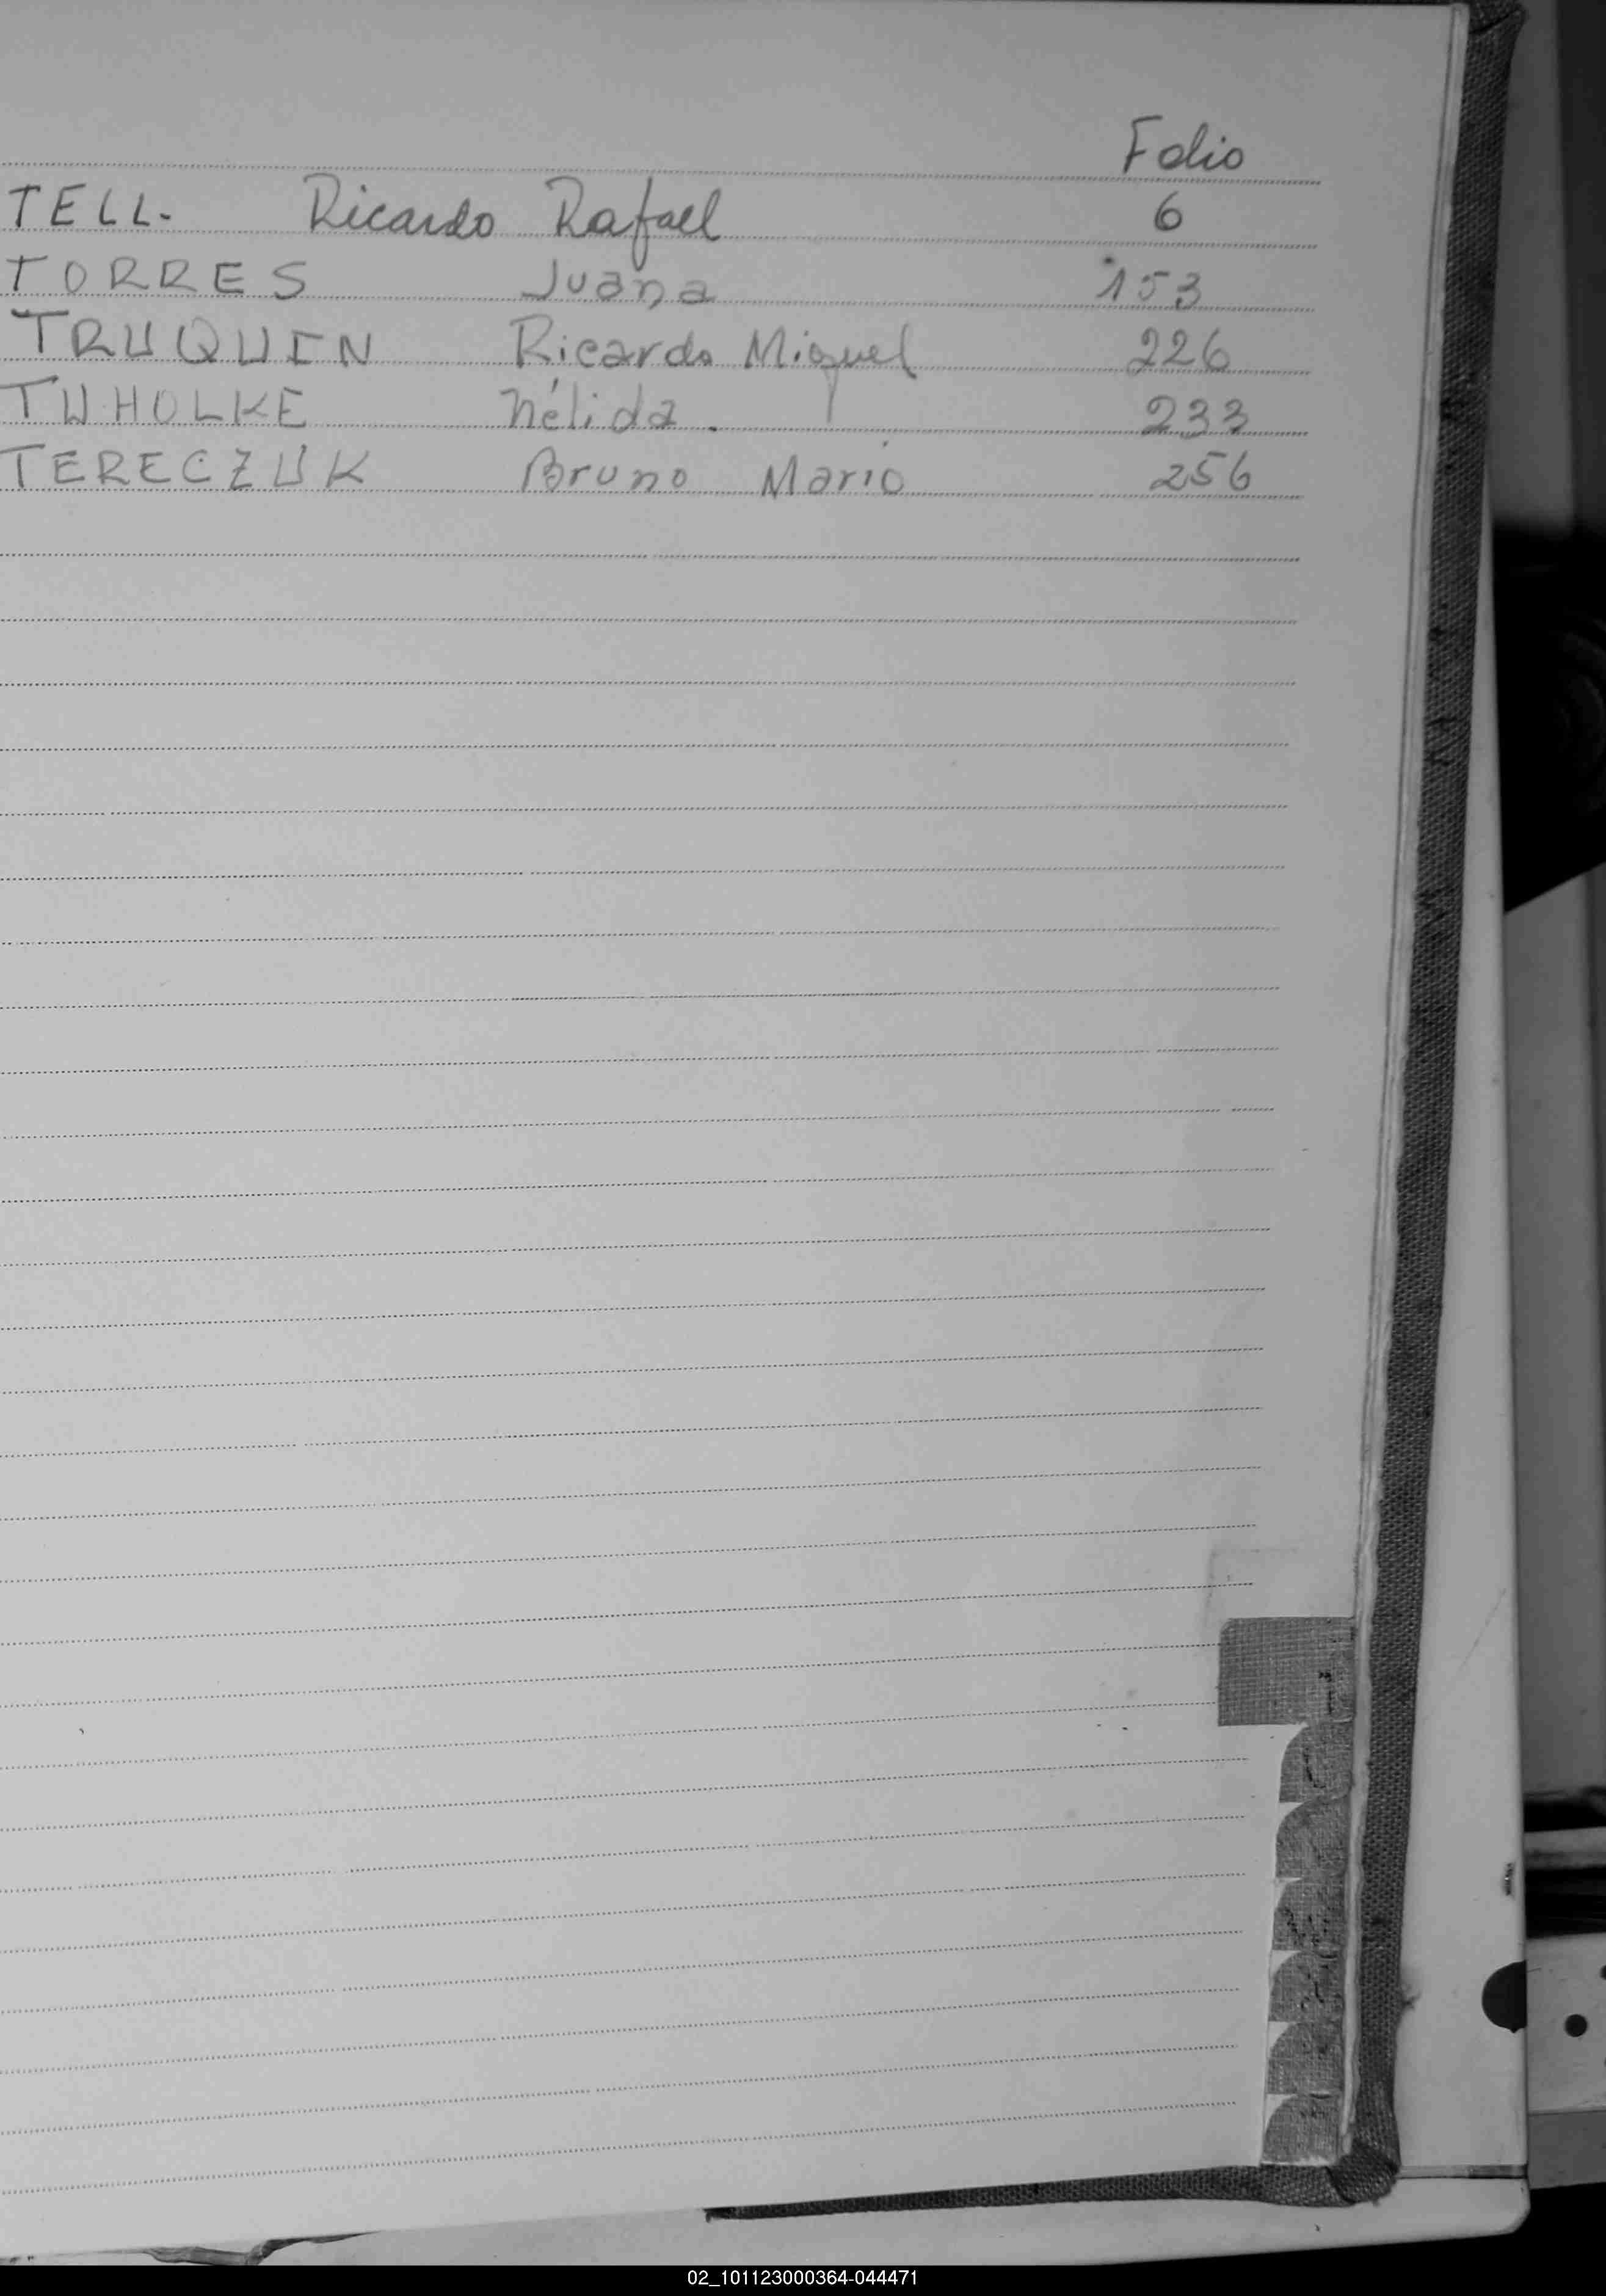 Folio
TELL. Ricardo Rafael 6
TORRES Juana 153
TRUQUIN Ricardo Miguel 226
TUHOLKE Nélida. 233
TERECZUK Bruno Mario 256
02_101123000364-044471